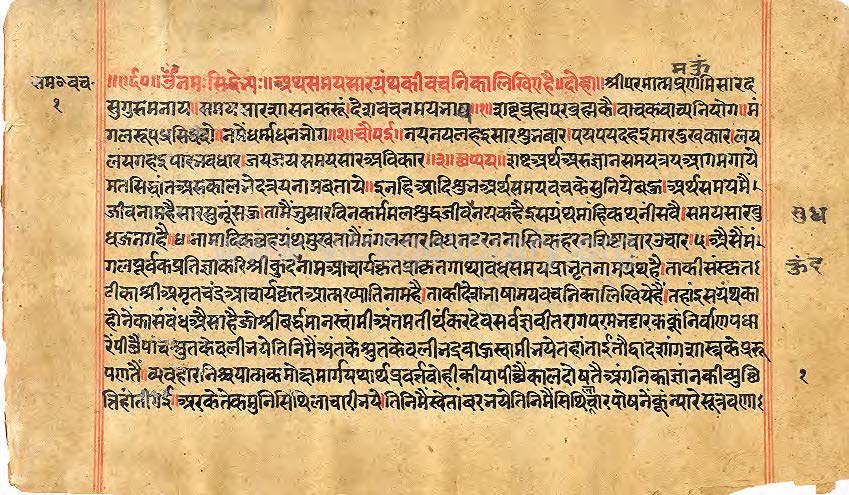 समय॰ वच॰
१
मकुं
॥ॐ नमः सिद्धेभ्यः॥ अथ समयसार ग्रंथकी वचनिका लिखिए है॥ दोहा॥ श्री परमात्म प्रणमि सारद
सुगुरु मनाय। समयसार शासन करूं देशवचनमय भाय॥१॥ शब्दब्रह्म परब्रह्मकै वाचक वाच्य नियोग। मं
गलरूप प्रसिद्ध धर्म धन भोग॥२॥ चौपई॥ नय नय लहइ सार शुभ वार। पय पय दहइ मार दुखकार। लय
लय गहइ पार भवधार। जय जय समयसार अविकार॥३॥ छप्पय॥ शब्द अर्थ अरु ज्ञान समय त्रय आगम गाये
मत सिद्धांत अरु काल भेद त्रय नाम बताये॥ इनहि आदि शुभ अर्थ समय वचके सुनिये बहु। अर्थ समयमै
जीव नाम है सार सुनूं सहु। तामै जु सार विन कर्म मल शुद्ध जीव नय कहै। इस ग्रंथ मांहि कथनी सबै। समयसार बु
धजन गहै॥४॥ विघनहर नास्तिकहरन शिष्टाचार उचार॥५॥ अैसैं मं
गलपूर्वक प्रतिज्ञा करि श्री कुंदनाम आचार्यकृत प्राकृत गाथाबंध समयप्राभृत नाम ग्रंथ है। ताकी संस्कृत
टीका श्री अमृतचंद्र आचार्यकृत आत्मख्याति नाम है। ताकी देशभाषामय वचनिका लिखिये है। तहां इस ग्रंथका
होनेका संबंध अैसा है जो श्री वर्द्धमानस्वामी अंतम तीर्थंकर देव सर्वज्ञ वीतराग परम भट्टारककूं निर्वाण पधा
रे पीछै पांच श्रुतकेवली भये तिनिमै अंतके श्रुतकेवली भद्रबाहु स्वामी भये तहां तांई तौ द्वादशांग शास्त्रके प्ररू
पणतैं व्यवहार निश्चयात्मक मोक्षमार्ग यथार्थ प्रवर्त्तवो ही कीया पीछै कालदोषतै अंगनिका ज्ञानकी व्युछि
त्ति होती गई। अर केतेक मुनि सिथिलाचारी भये। तिनिमै स्वेतांबर भये तिनिमै सिथिलाचार पोषनेकूं न्यारे सूत्र बणा
कुंद
१